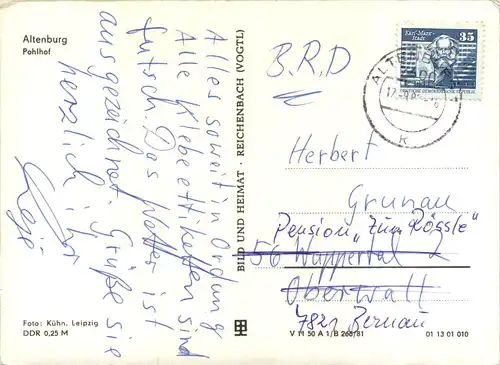 Altenburg
Pohlhof
Alles soweit in Ordnung
Alle Klebeettiketten sind
futsch. Das Wetter ist
ausgezeichnet. Grüße sie
herzlich ihr
BILD UND HEIMAT · REICHENBACH (VOGTL)
35
Karl-Marx-
Stadt
DEUTSCHE DEMOKRATISCHE REPUBLIK
ALTENBURG
K
B.R.D
Herbert
Grunau
Pension „Zum Rössle"
56 Wuppertal 2
Oberwall
7821 Bernau
Foto: Kühn, Leipzig
DDR 0,25 M
V 11 50 A 1/B 268/81
01 13 01 010